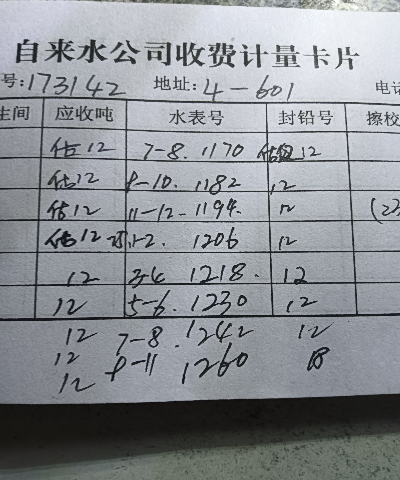 自来水公司收费计量卡片
号:173142 地址:4-601 电话
生间 应收吨 水表号 封铅号 擦校
估12 7-8.1170 估 12
估12 9-10.1182 12
估12 11-12-1194. 12 (23
估12 1-2. 1206 12
12 3-4 1218. 12
12 5-6.1230 12
12 7-8.1242 12
12 9-11 1260 18
12